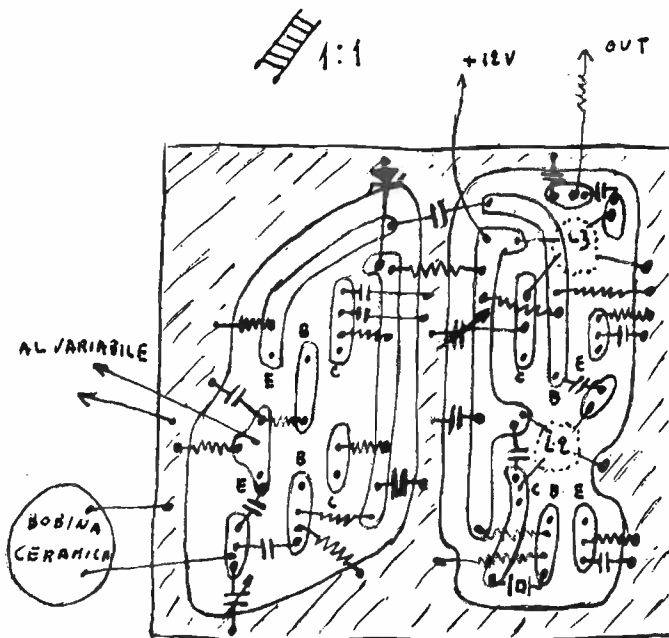 1:1
+12V
OUT
L3
B
C
E
AL VARIABILE
E
B
B
L2
E
C
C B E
BOBINA
CERAMICA